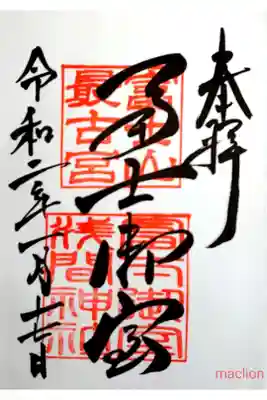 奉拝
冨士御室
富士山
最古宮
冨士御室
浅間神社
令和二年一月日
maclion